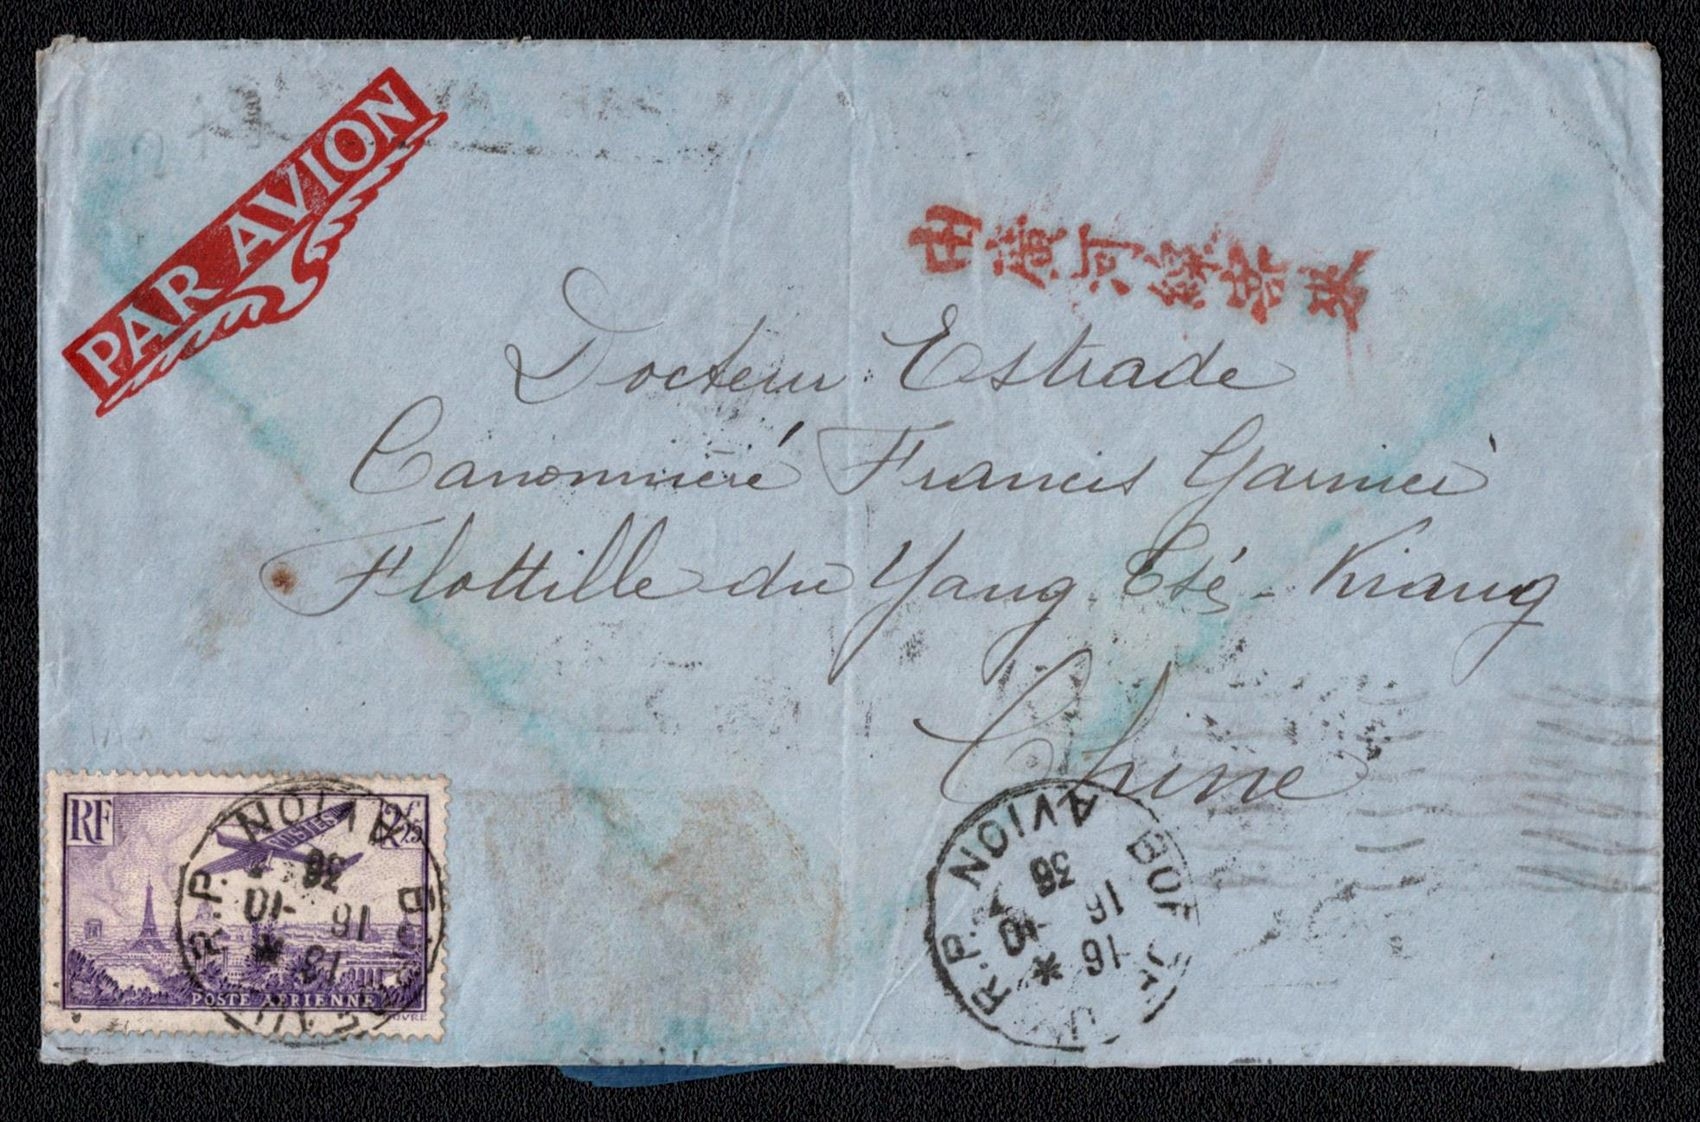 PAR AVION
由黃河
Docteur Estrade
Canonnière Francis Garnier
Flottille du Yang Tsé-Kiang
Chine
RF
2F25
POSTES
POSTE AERIENNE
R.P. AVION
13
16 -10
36
R.P. AVION
16
16 -10
36